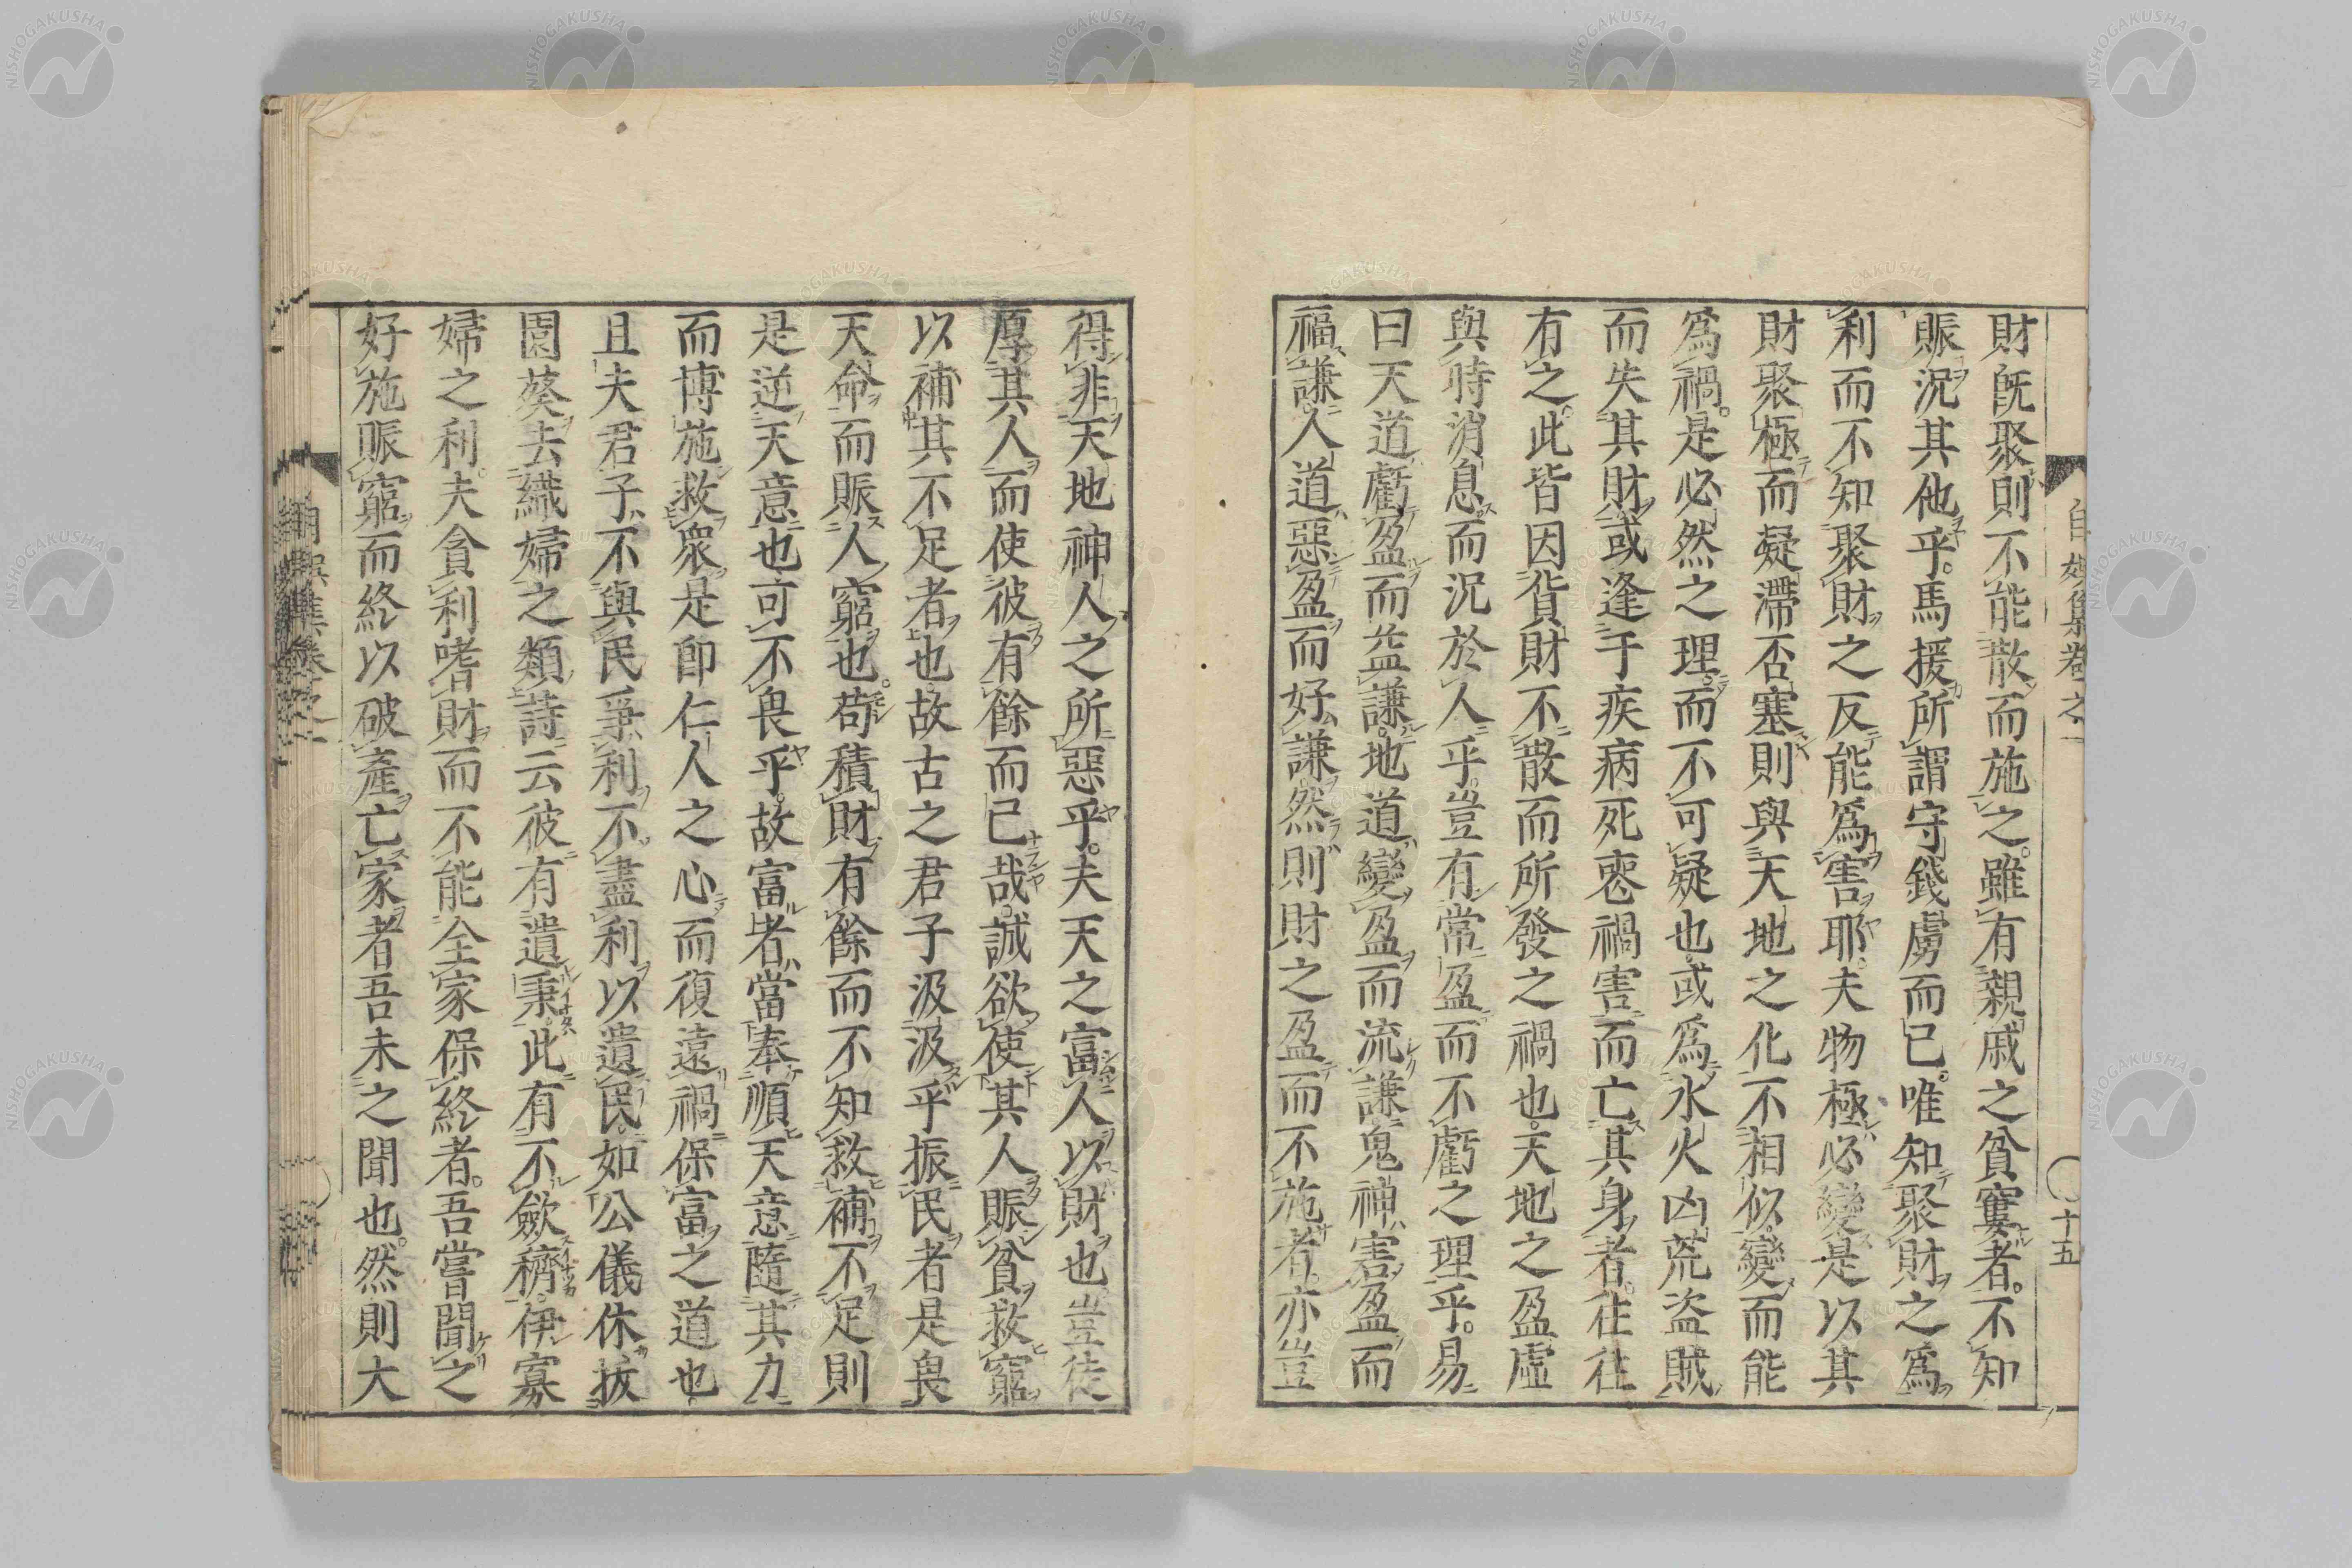 財既聚則不能散而施之。雖有親戚之貧窶者。不知
賑況其他乎。馬援所謂守錢虜而已。唯知聚財之爲
利而不知聚財之反能爲害耶。夫物極必變是以其
財聚極而凝滯否塞則與天地之化不相似。變而能
爲禍。是必然之理。而不可疑也或爲水火凶荒盜賊
而失其財或逢于疾病死喪禍害而亡其身者。往往
有之。此皆因貨財不散而所發之禍也。天地之盈虛
與時消息。而況於人乎。豈有常盈而不虧之理乎。易
曰天道虧盈而益謙。地道變盈而流謙鬼神害盈而
福謙人道惡盈而好謙然則財之盈而不施者。亦豈
得非天地神人之所惡乎。夫天之富人以財也豈徒
厚其人而使彼有餘而已哉。誠欲使其人賑貧救窮
以補其不足者也故古之君子汲汲乎振民者是畏
天命而賑人窮也。苟積財有餘而不知救補不足則
是逆天意也可不畏乎。故富者當奉順天意隨其力
而博施救衆是卽仁人之心而復遠禍保富之道也
且夫君子不與民爭利不盡利以遺民。如公儀休拔
園葵去織婦之類詩云彼有遺秉。此有不斂穧。伊寡
婦之利。夫貪利嗜財而不能全家保終者。吾嘗聞之
好施賑窮而終以破產亡家者吾未之聞也。然則大
自娛集卷之一
十五